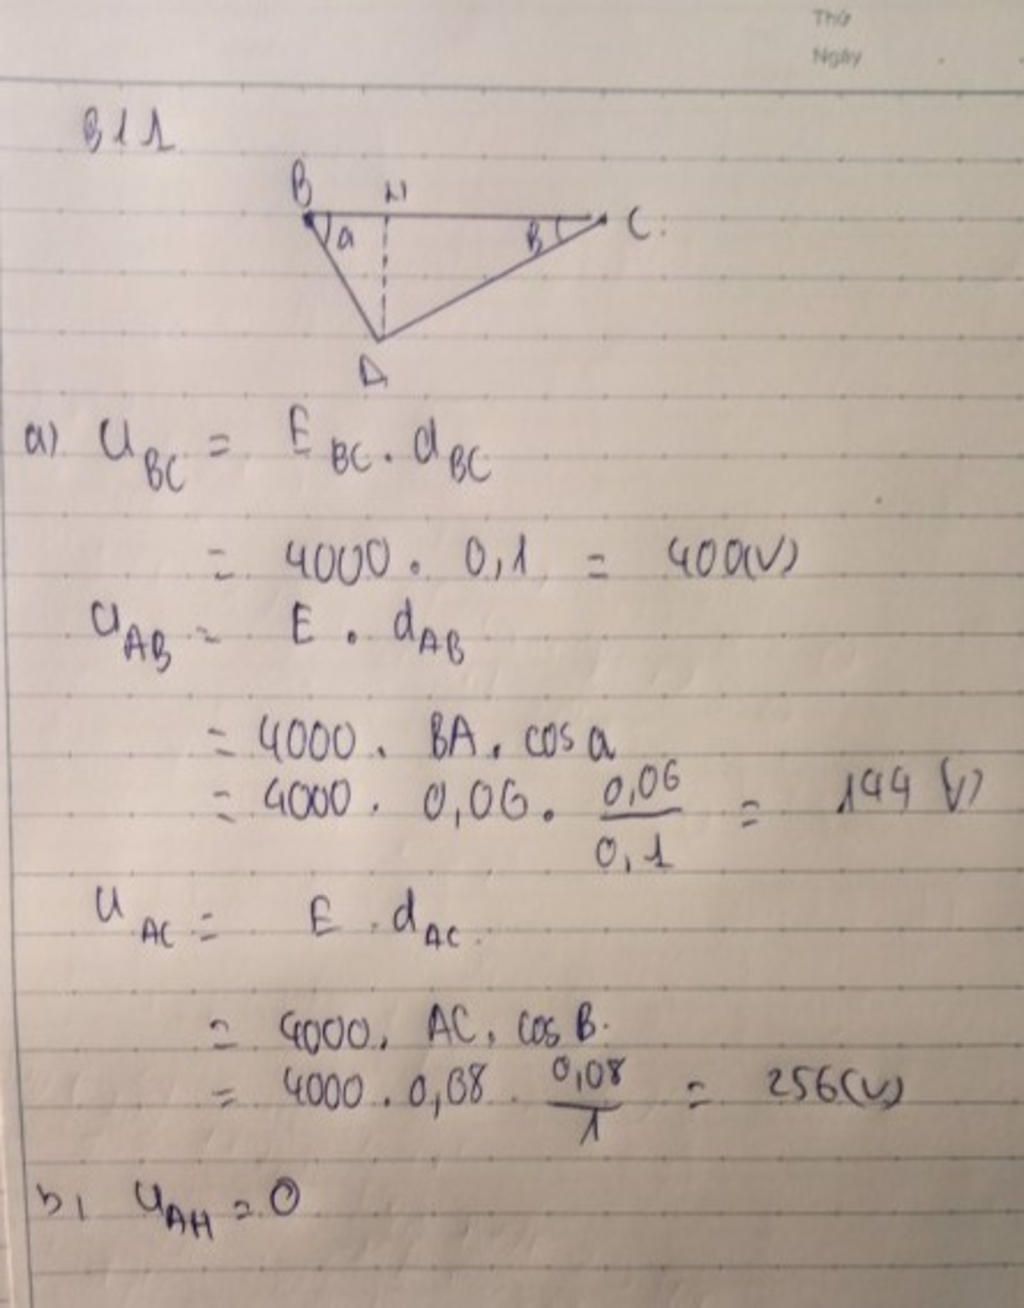 Thứ
Ngày
B H C
a B
A
a) U_BC = E_BC . d_BC
= 4000 . 0,1 = 400(V)
U_AB = E . d_AB
= 4000 . BA . cos a
= 4000 . 0,06 . 0,06/0,1 = 144 (V)
U_AC = E . d_AC.
= 4000. AC. cos B.
= 4000 . 0,08 . 0,08/1 = 256(V)
b) U_AH = 0